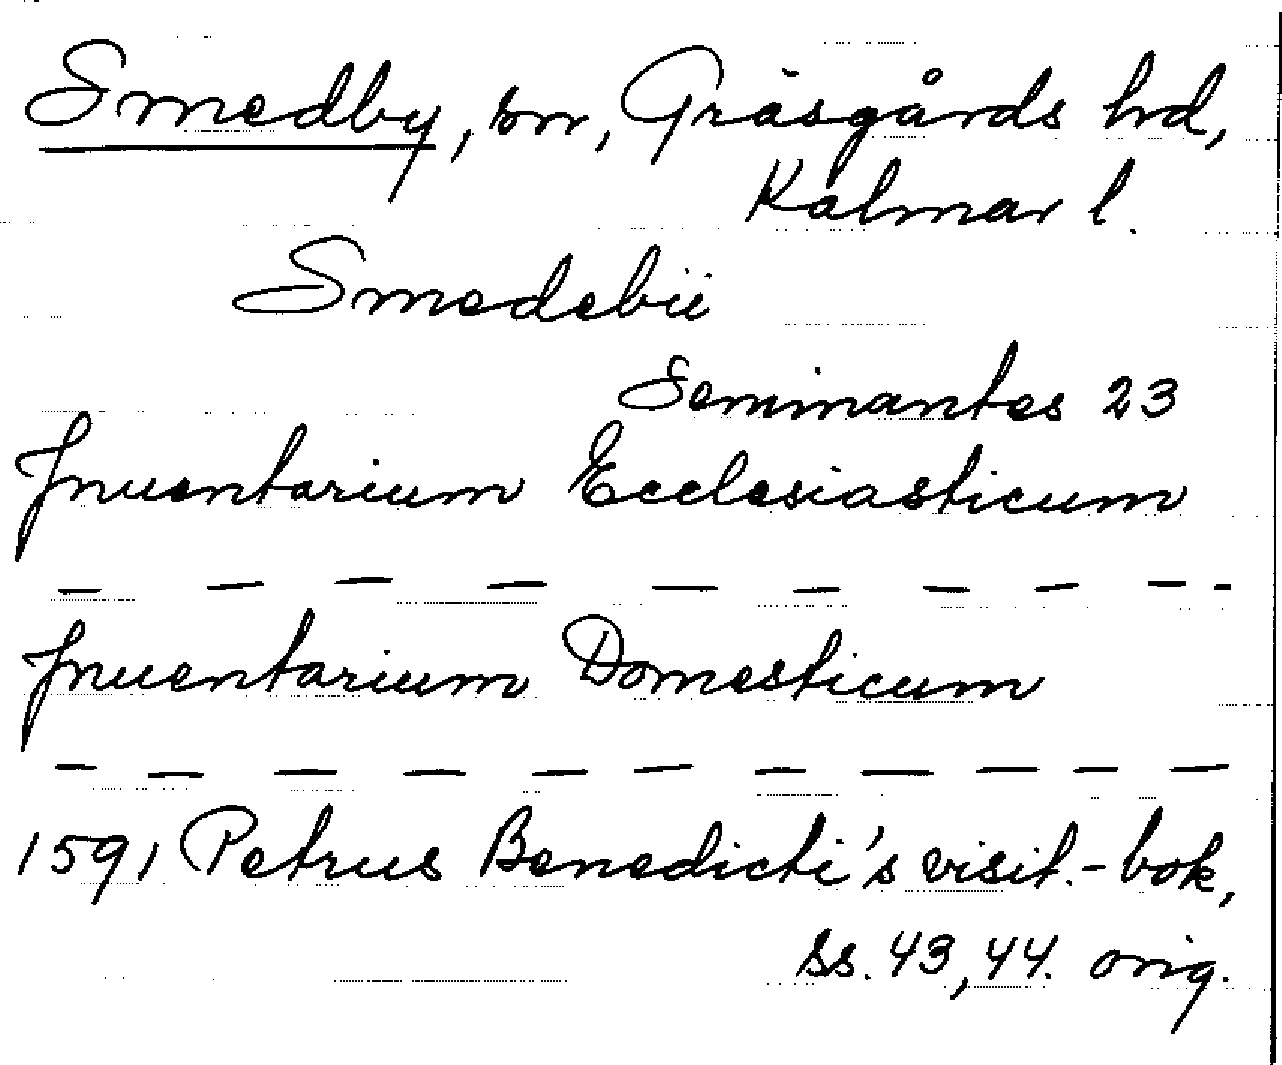 Smedby, sn, Gräsgårds hd,
Kalmar l.
Smedebii
Seminantes 23
Inuentarium Ecclesiasticum
— — — — — — — — — -
Inuentarium Domesticum
— — — — — — — — — — —
1591 Petrus Benedicti's visit.-bok,
ss. 43, 44. orig.